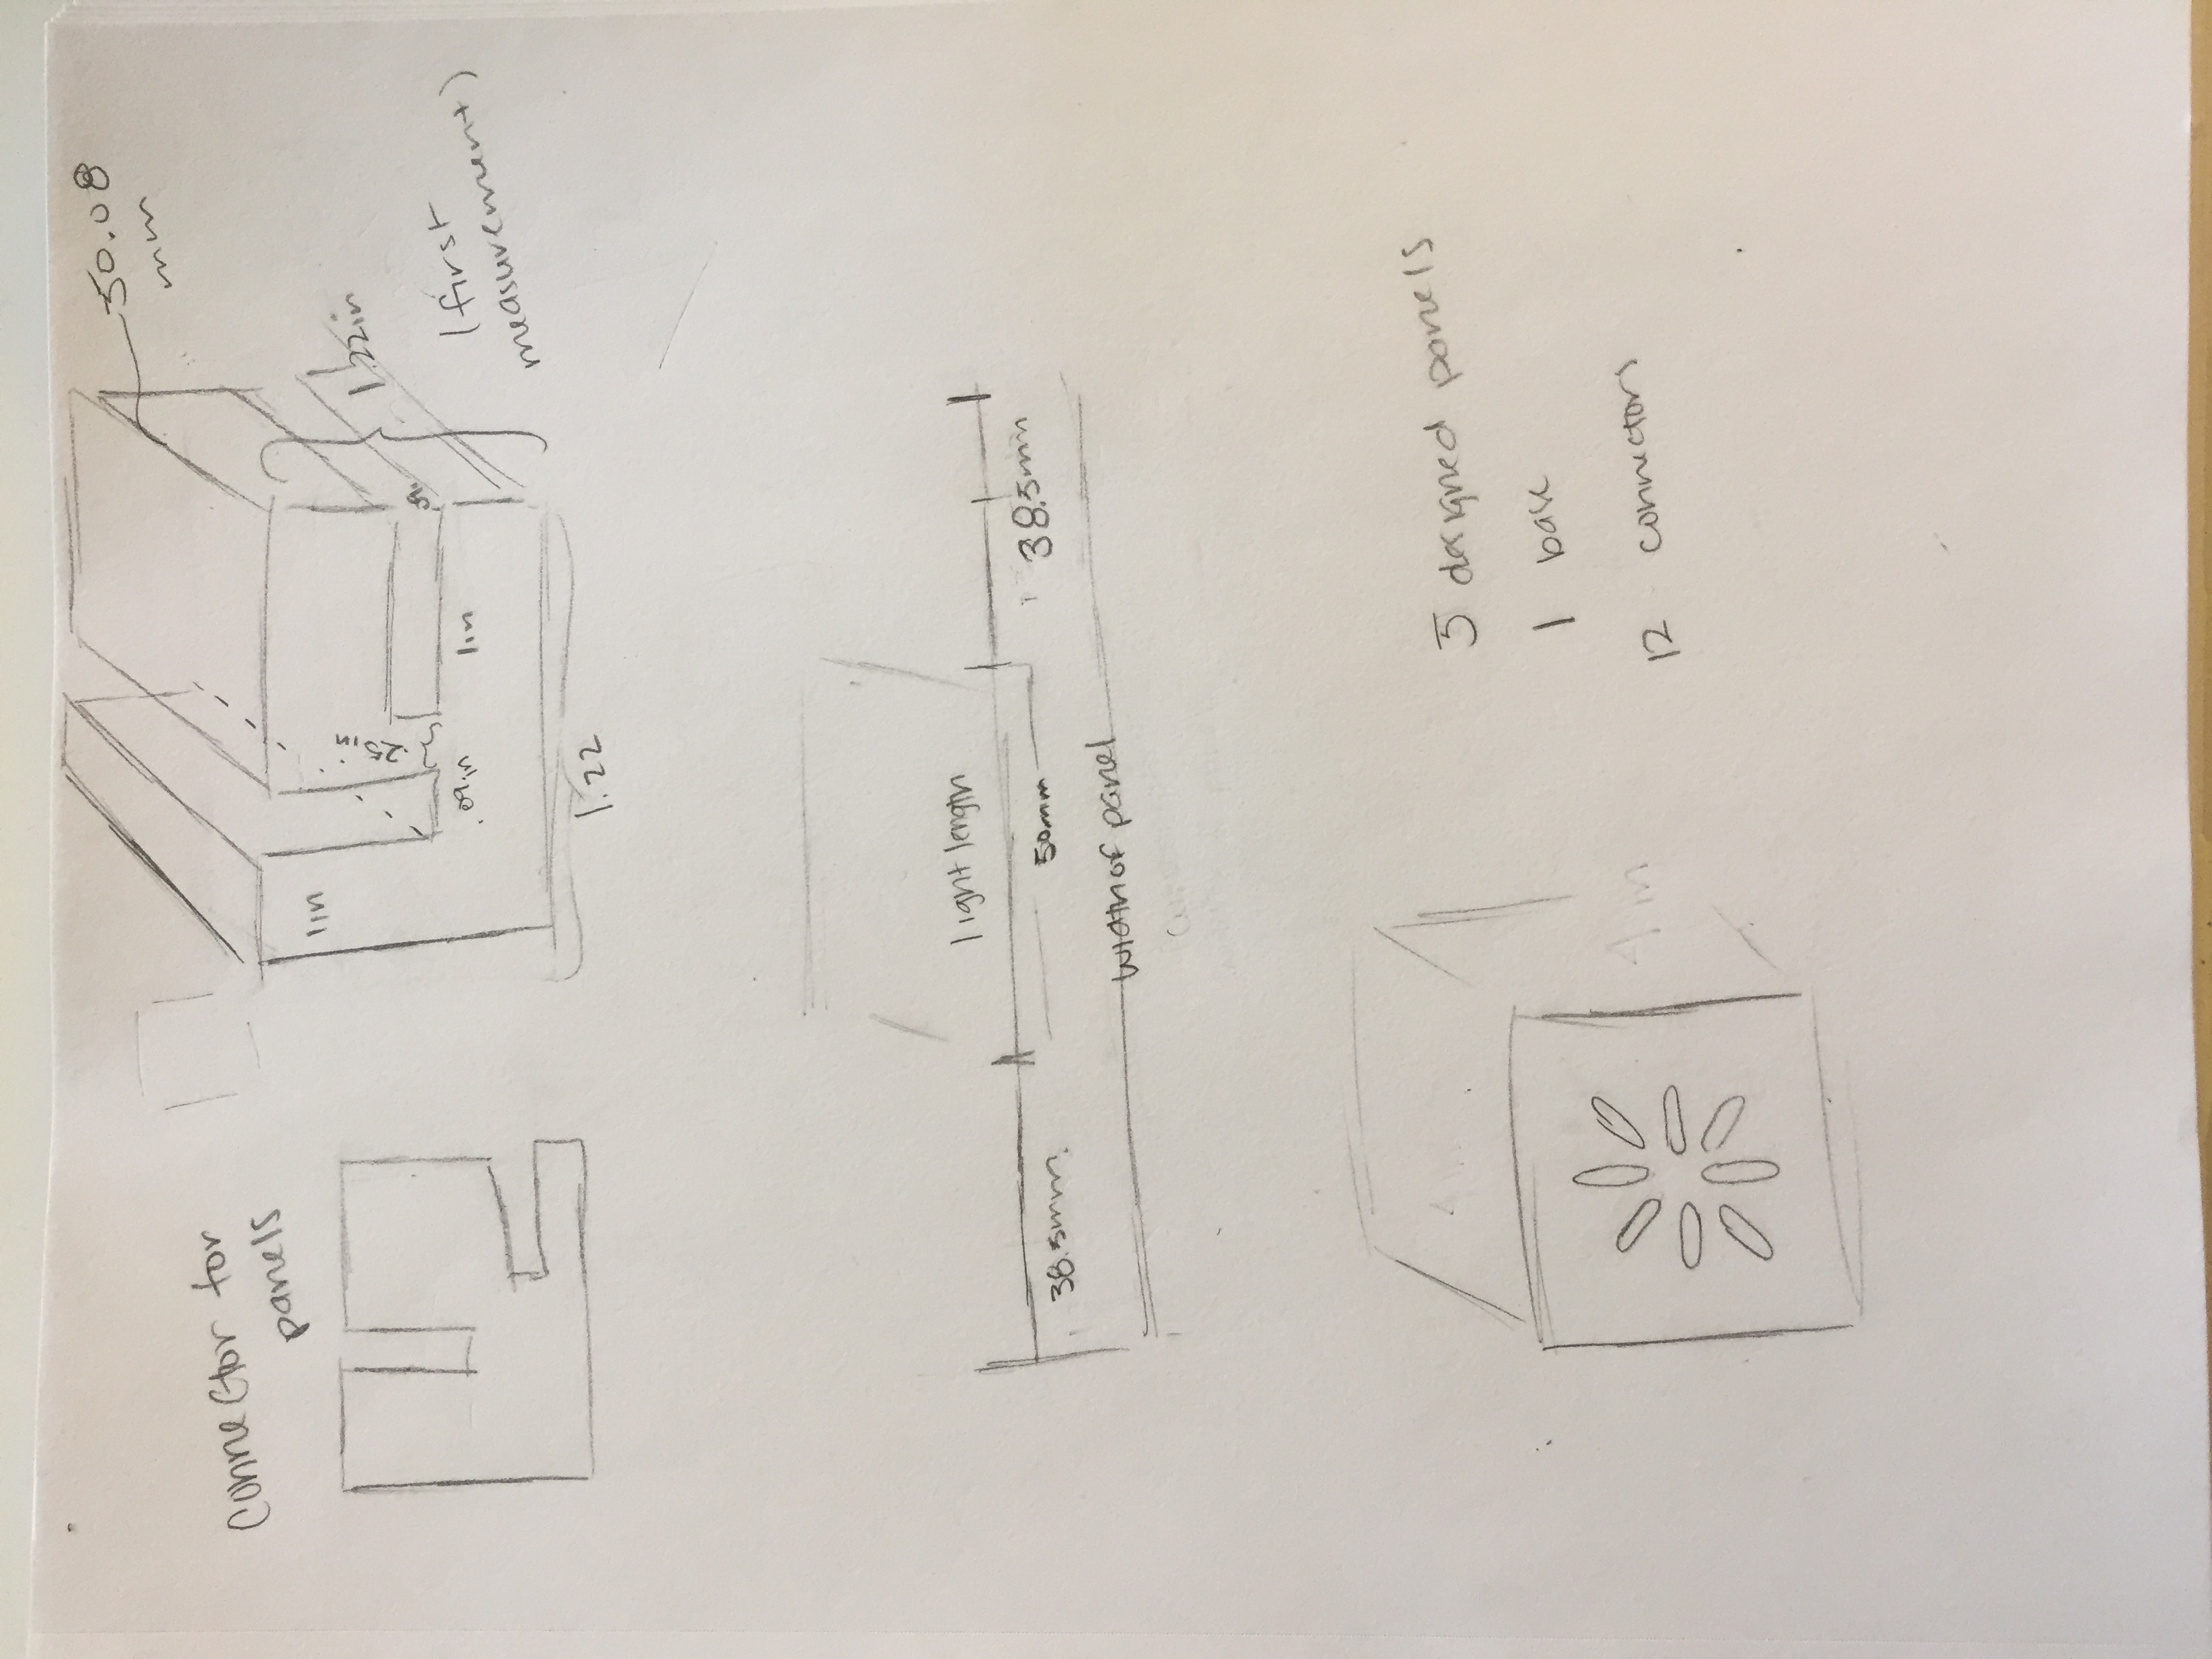 connector for
panels
50.08
mm
1in
.25in
.09in
1in
.09
1.22in
(first
measurement)
1.22
light length
38.5mm
50mm
38.5mm
width of panel
5 designed panels
1 base
12 connectors
4 in